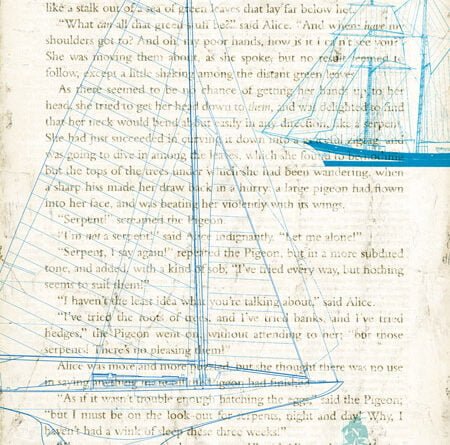 like a stalk out of a sea of green leaves that lay far below her.
"What can all that green stuff be?" said Alice. "And where have my
shoulders got to? And oh, my poor hands, how is it I can't see you?"
She was moving them about, as she spoke, but no result seemed to
follow, except a little shaking among the distant green leaves.
As there seemed to be no chance of getting her hands up to her
head, she tried to get her head down to them, and was delighted to find
that her neck would bend about easily in any direction, like a serpent.
She had just succeeded in curving it down into a graceful zigzag, and
was going to dive in among the leaves, which she found to be nothing
but the tops of the trees under which she had been wandering, when
a sharp hiss made her draw back in a hurry: a large pigeon had flown
into her face, and was beating her violently with its wings.
"Serpent!" screamed the Pigeon.
"I'm not a serpent!" said Alice indignantly. "Let me alone!"
"Serpent, I say again!" repeated the Pigeon, but in a more subdued
tone, and added, with a kind of sob, "I've tried every way, but nothing
seems to suit them!"
"I haven't the least idea what you're talking about," said Alice.
"I've tried the roots of trees, and I've tried banks, and I've tried
hedges," the Pigeon went on, without attending to her; "but those
serpents! There's no pleasing them!"
Alice was more and more puzzled, but she thought there was no use
in saying anything more till the Pigeon had finished.
"As if it wasn't trouble enough hatching the eggs," said the Pigeon;
"but I must be on the look-out for serpents, night and day! Why, I
haven't had a wink of sleep these three weeks!"